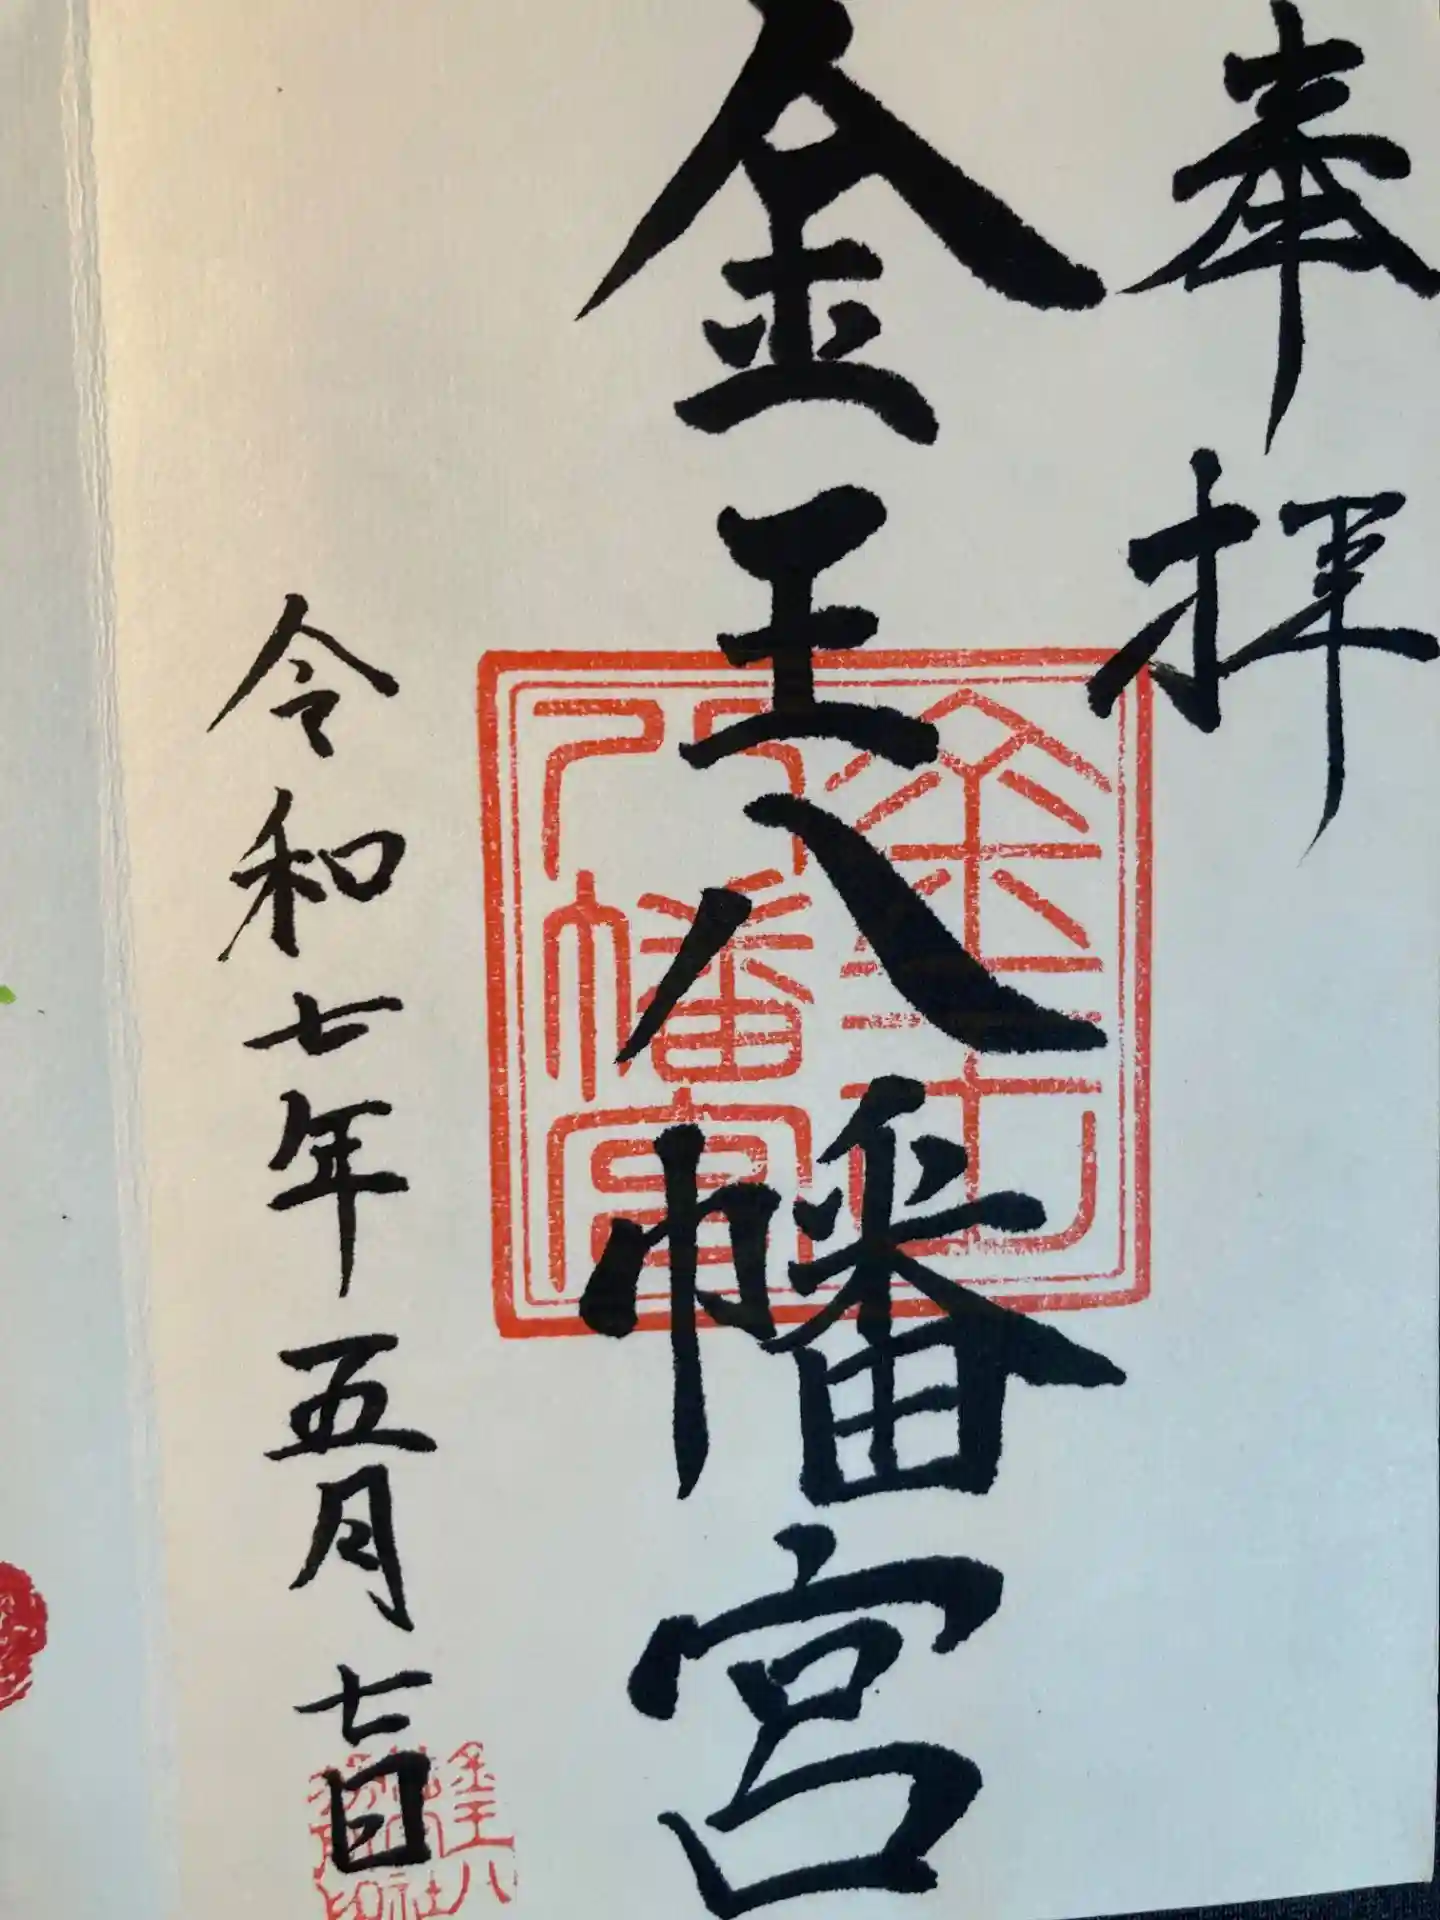 奉拝
金王八幡宮
金王
八幡宮
令和七年五月七日
金王八